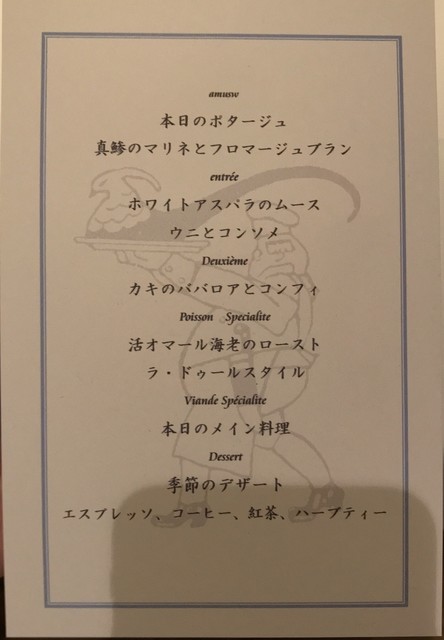 amusw
本日のポタージュ
真鯵のマリネとフロマージュブラン
entrée
ホワイトアスパラのムース
ウニとコンソメ
Deuxième
カキのババロアとコンフィ
Poisson Specialite
活オマール海老のロースト
ラ・ドゥールスタイル
Viande Spécialite
本日のメイン料理
Dessert
季節のデザート
エスプレッソ、コーヒー、紅茶、ハーブティー